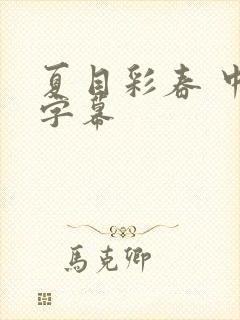 夏目彩春 中
字幕
馬克卿